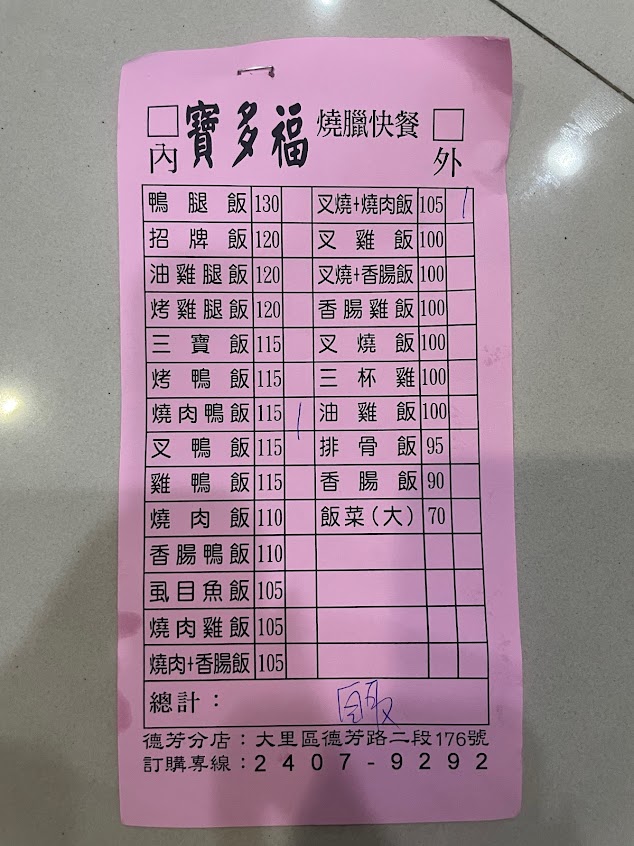 內 寶多福 燒臘快餐 外
鴨腿飯 130 叉燒+燒肉飯 105 1
招牌飯 120 叉雞飯 100
油雞腿飯 120 叉燒+香腸飯 100
烤雞腿飯 120 香腸雞飯 100
三寶飯 115 叉燒飯 100
烤鴨飯 115 三杯雞 100
燒肉鴨飯 115 1 油雞飯 100
叉鴨飯 115 排骨飯 95
雞鴨飯 115 香腸飯 90
燒肉飯 110 飯菜(大) 70
香腸鴨飯 110
虱目魚飯 105
燒肉雞飯 105
燒肉+香腸飯 105
總計：
德芳分店：大里區德芳路二段176號
訂購專線：2407-9292